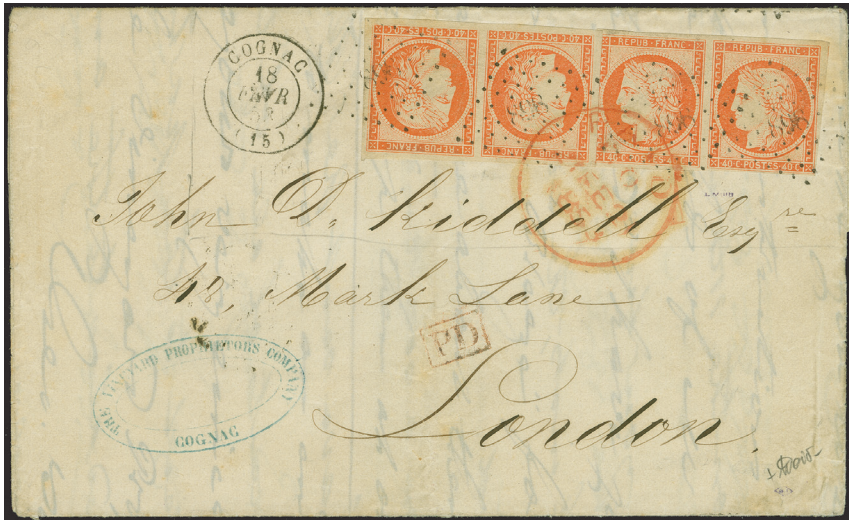 COGNAC
18
FEVR
(15)
40·C·POSTES·40·C·
REPUB·FRANC·
40·C·POSTES·40·C·
REPUB·FRANC·
REPUB·FRANC·
40·C·POSTES·40·C·
REPUB·FRANC·
40·C·POSTES·40·C·
John D. Riddell Esqre
42, Mark Lane
PD
London
THE VINEYARD PROPRIETORS COMPANY
COGNAC